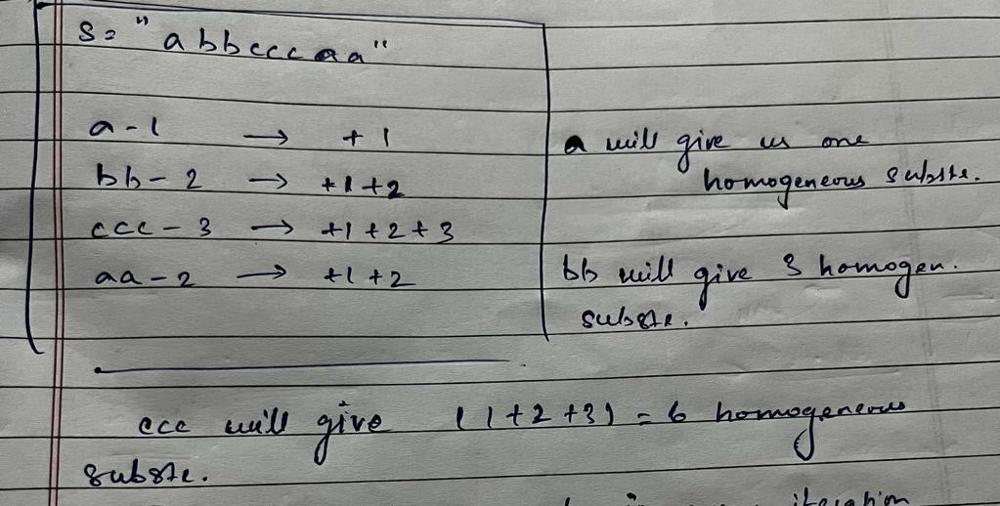 S = "abbcccaa"
a - 1 → +1
bb - 2 → +1+2
ccc - 3 → +1+2+3
aa - 2 → +1+2
a will give us one
homogeneous substr.
bb will give 3 homogen.
substr.
ccc will give (1+2+3) = 6 homogeneous
substr.
iteration